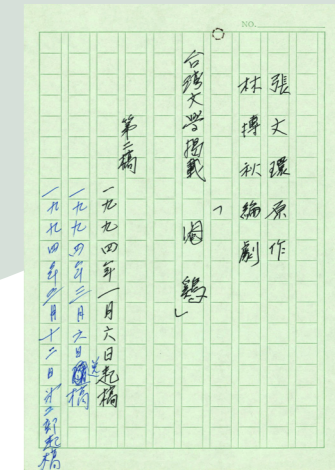 NO.
張文環原作
林摶秋編劇
「閹鷄」
台灣文學掲載
第二稿
一九九四年一月六日起稿
一九九四年三月六日完稿
一九九四年四月十二日第二部起稿